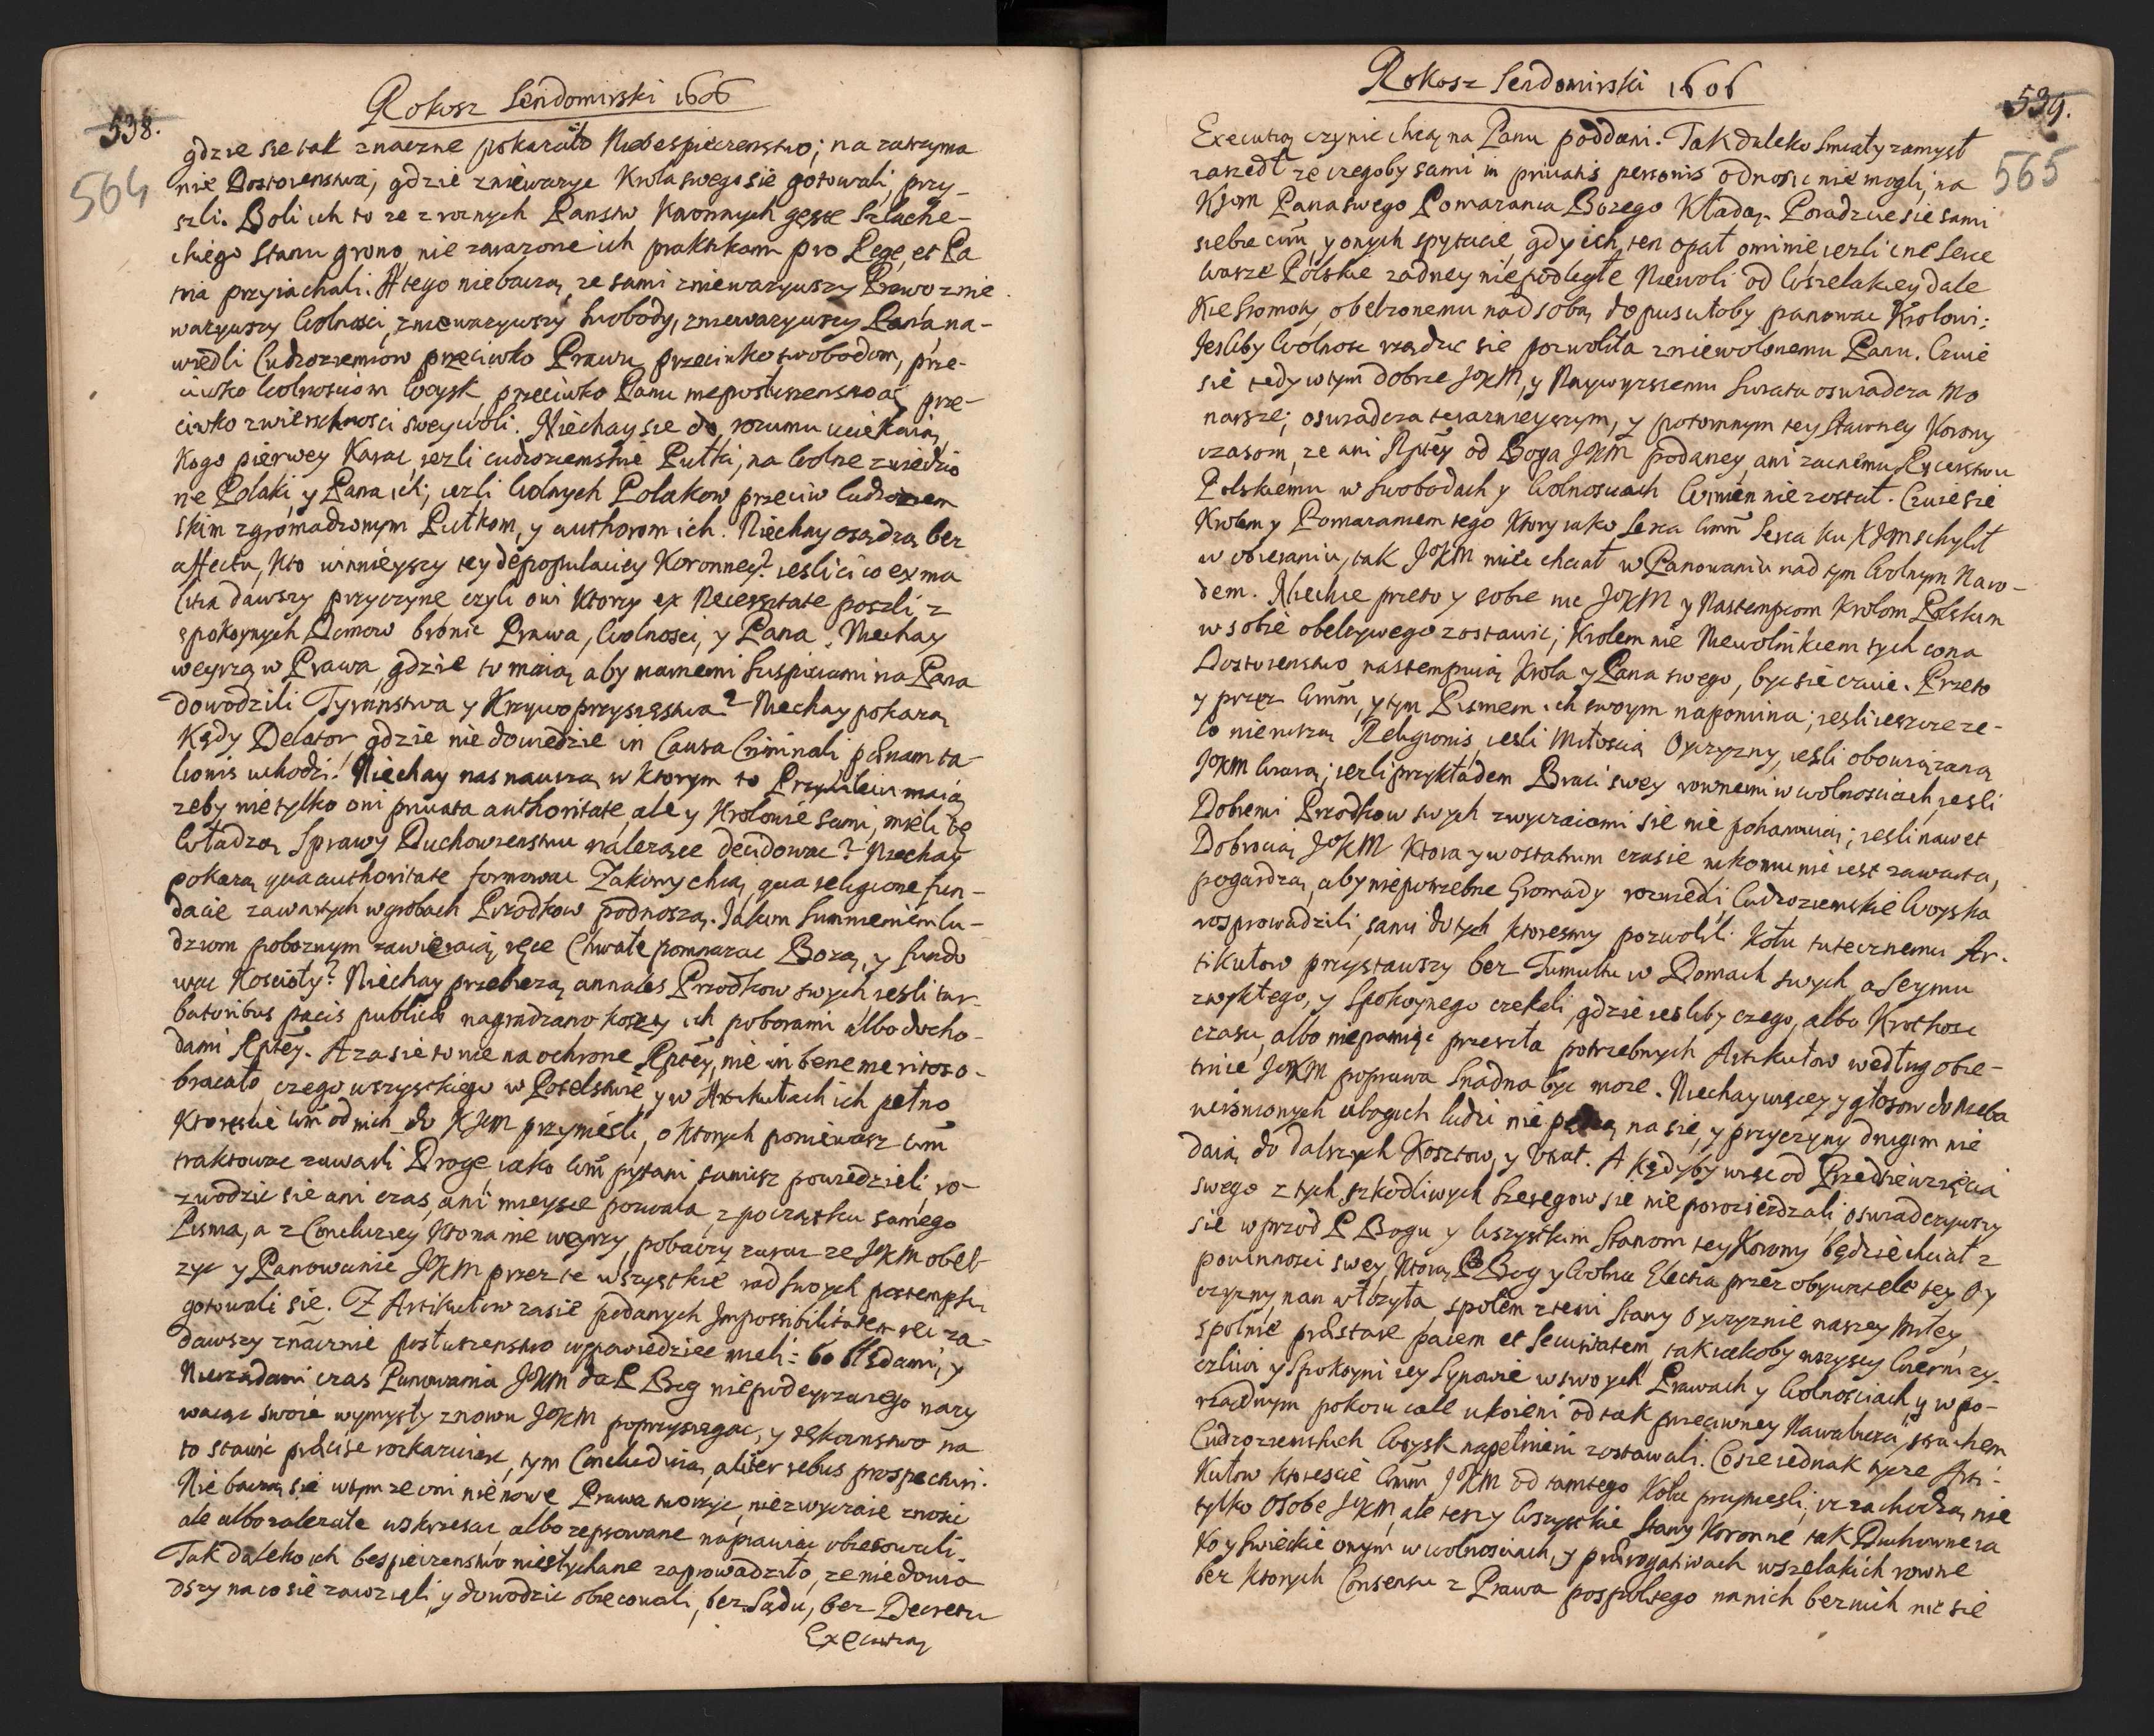 Rokosz Sendomirski 1606
538.
564
gdzie sie tak znaczne pokazało Niebespieczenstwo; na zatrzyma
nie Dostoienstwa, gdzie zniewazyc Krola swego sie gotowali, przy-
szli. Boli ich to ze z roznych Panstw Koronnych gęste Szlache-
ckiego Stanu grono, nie zarazone ich praktikami pro Lege, et Pa
tria przyiachali. A tego niebaczą, ze sami zniewazywszy Prawo znie
wazywszy Wolnosci, zniewazywszy Swobody, zniewazywszy Pana na-
wiedli Cudzoziemcow przeciwko Prawu, przeciwko swobodom, prze-
ciwko Wolnosciom Woysk, przeciwko Panu nieposłuszenstwa, prze-
ciwko zwierzchnosci swey woli. Niechay sie do rozumu uciekaią,
Kogo pierwey Karac, iezli cudzoziemskie Pułki, na Wolne zwiedzio
ne Polaki, y Pana ich; iezli Wolnych Polakow przeciw Cudzoziem
skim zgromadzonym Pułkom, y authorom ich. Niechay osądzą bez
affectu, Kto winnieyszy tey depopulaciey Koronney? iesli ci co ex ma
litia dawszy przyczyne czyli oni Ktorzy ex Necessitate poszli z
spokoynych Domow bronic Prawa, Wolnosci, y Pana. Niechay
weyrzą w Prawa, gdzie to maią, aby marnemi Suspiciami na Pana
dowodzili Tyranstwa y Krzywoprzysięstwa? Niechay pokazą
Kędy Delator, gdzie nie dowiedzie in Causa Criminali pœnam ta-
lionis uchodzi! Niechay nas nauczą w Ktorym to Przywileiu maią
zeby nie tylko oni privata authoritate, ale y Krolowie sami, mieli tę
Władzą Sprawy Duchowienstwu nalezące decidowac? Niechay
pokazą qua authoritate formowac Zakony chcą, qua religione fun-
dacie zawartych w grobach Przodkow podnoszą. Jakim Sumnieniem lu-
dziom poboznym zawieraią ręce Chwałe pomnazac Bozą, y fundo
wac Koscioły? Niechay przebiezą annales Przodkow swych iesli tur-
batoribus pacis publicæ nagradzano koszty ich poborami albo docho-
dami Rptey. A zasie to nie na ochrone Rptey, nie in bene meritos o-
bracało, czego wszystkiego w Poselstwie y w Artikułach ich pełno
Ktorescie Wm od nich do KJM przyniesli, o Ktorych poniewasz Wm
traktowac zawarli Droge, iako Wm pytani samisz powiedzieli, ro-
zwodzic sie ani czas, ani mieysce pozwala, z początku samego
Pisma, a z Conclusiey Kto na nie weyrzy, pobaczy zaraz ze JKM obel-
zyc y Panowanie JKM przez te wszystkie rad swoych postempki
gotowali sie. Z Artikułow zasie podanych Impossibilitatem rei za-
dawszy znacznie posłuszenstwo wypowiedziec mieli: bo błędami, y
Nierządami czas Panowania JKM da P Bog niepodeyrzanego nazy
waiąc swoie wymysły znowu JKM poprzysięgac, y rękoemstwo na
to stawic præcise rozkazuiąc, tym Concluduią, aliter rebus prospectum.
Nie baczą sie w tym ze oni nie nowe Prawa tworzyc, nie zwyczaie znosic
ale albo zalezałe wskrzesac, albo zepsowane naprawiac obiecowali.
Tak daleko ich bespieczenstwo niesłychane zaprowadziło, ze nie dowio
dszy na co sie zawzięli, y dowodzic obiecowali, bez Sądu, bez Decretu
Executią
Rokosz Sendomirski 1606
539.
565
Executią czynic chcą na Panu poddani. Tak daleko Smiały zamysł
zaszedł ze czegoby sami in privatis personis odnosic nie mogli, na
KJM Pana swego Pomazanca Bozego Kładą. Poradzcie sie sami
siebie Wm, y onych spytacie, gdy ich ten opał ominie, iezli cne Serce
Wasze Polskie zadney niepodległe Niewoli od Wszelakiey dale
Kie Sromoty, obelzonemu nad sobą dopusciłoby panowac Krolowi;
Jesliby Wolnosc rządzic sie pozwoliła zniewolonemu Panu. Czuie
sie tedy w tym dobrze JKM, y Naywyzszemu Swiata oswiadcza Mo
narsze; oswiadcza teraznieyszym, y potomnym tey Sławney Korony
czasom, ze ani Rptey od Boga JKM podaney, ani zacnemu Rycerstwu
Polskiemu w Swobodach y Wolnosciach Winien nie zostal. Czuie sie
Krolem y Pomazancem tego Ktory iako Serca Wm Serca ku KJM schylił
w obieraniu, tak JKM miec chciał w Panowaniu nad tym Wolnym Naro-
dem. Niechce przeto y sobie nic JKM y Nastempcom Krolom Polskim
w sobie obelzywego zostawic; Krolem nie Niewolnikiem tych co na
Dostoienstwo nastempuią Krola y Pana swego, byc sie czuie. Przeto
y przez Wm, y tym Pismem ich swoym napomina; iesli ieszcze ze-
lo nie ruszą Religionis, iesli Miłoscią Oyczyzny, iesli obowiązaną
JKM Wiarą; iezli przykładem Braci swey rownemi w wolnosciach, iesli
Dobremi Przodkow swych zwyczaiami sie nie pohamuią; iesli nawet
Dobrocią JKM Ktora y w ostatnim czasie nikomu nie iest zawarta,
pogardzą, aby niepotrzebne Gromady rozwiedli Cudzoziemskie Woyska
rosprowadzili, sami do tych Ktoresmy pozwolili Kołu tutecznemu Ar-
tikułow przystawszy bez Tumultu w Domach swych, a Seymu
zwykłego, y Spokoynego czekali, gdzie iesliby czego, albo Krotkosc
czasu, albo niepamięc przeszła potrzebnych Artikułow według obie-
tnice JKM poprawa Snadna byc moze. Niechay więcey y głosow do Nieba
ucisnionych ubogich ludzi nie na sie, y przyczyny drugim nie
daią do dalszych Kosztow, y Utrat. A Kędyby więc od Przedsiewzięcia
swego z tych szkodliwych Szeregow sie nie porozieżdzali, oswiadczywszy
sie wprzod P Bogu y Wszystkim Stanom tey Korony będzie chciał z
powinnosci swey, Ktorą P Bog y Wolna Electia przez obywatele tey Oy
czyzny, nan włozyła, spolem z temi Stany Oyczyznie naszey Miłey
spolnie præstare pacem et Securitatem, tak iakoby wszyscy Wierni zy-
czliwi y Spokoyni iey Synowie w swoych Prawach y Wolnosciach y w po-
rządnym pokoiu cale ukoieni od tak przeciwney Nawalnosci, strachem
Cudzoziemskich Woysk napełnieni zostawali. Co sie iednak tycze Arti-
Kułow Ktorescie Wm JKM od tamtego Koła przyniesli, iz zachodzą nie
tylko Osobe JKM, ale tesz y Wszystkie Stany Koronne tak Duchowne ia
Ko y Swieckie onym w wolnosciach, y prærogatiwach wszelakich rowne
bez Ktorych Consensu z Prawa pospolitego na nich bez nich nic sie